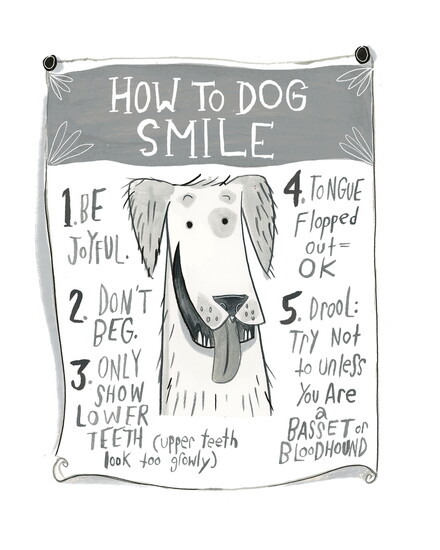 HOW TO DOG
SMILE
1. BE
JOYFUL.
2. DON'T
BEG.
3. ONLY
SHOW
LOWER
TEETH (upper teeth
look too growly)
4. TONGUE
Flopped
out =
OK
5. DROOL:
TRY NOT
to unless
You ARe
a
BASSET or
BLOODHOUND